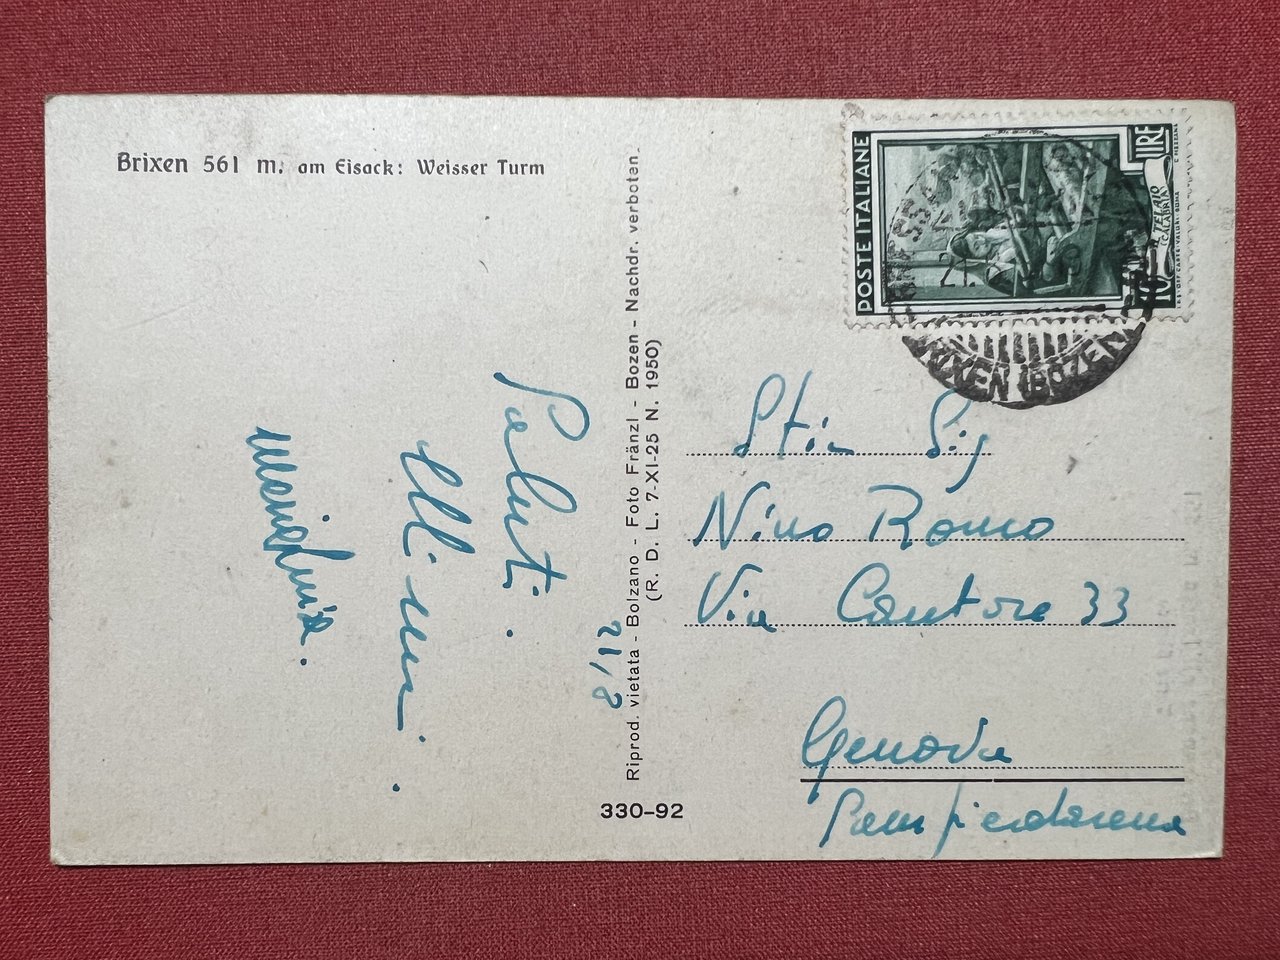 Brixen 561 m. am Eisack: Weisser Turm
Saluti
Marialuisa.
21,8
Riprod. vietata - Bolzano - Foto Fränzl - Bozen - Nachdr. verboten.
(R. D. L. 7-XI-25 N. 1950)
330-92
POSTE ITALIANE
LIRE
10
IL TELAIO
(CALABRIA)
BRIXEN (BOZEN)
Sig
Nino Romeo
Via Cantore 33
Genova
Sampierdarena